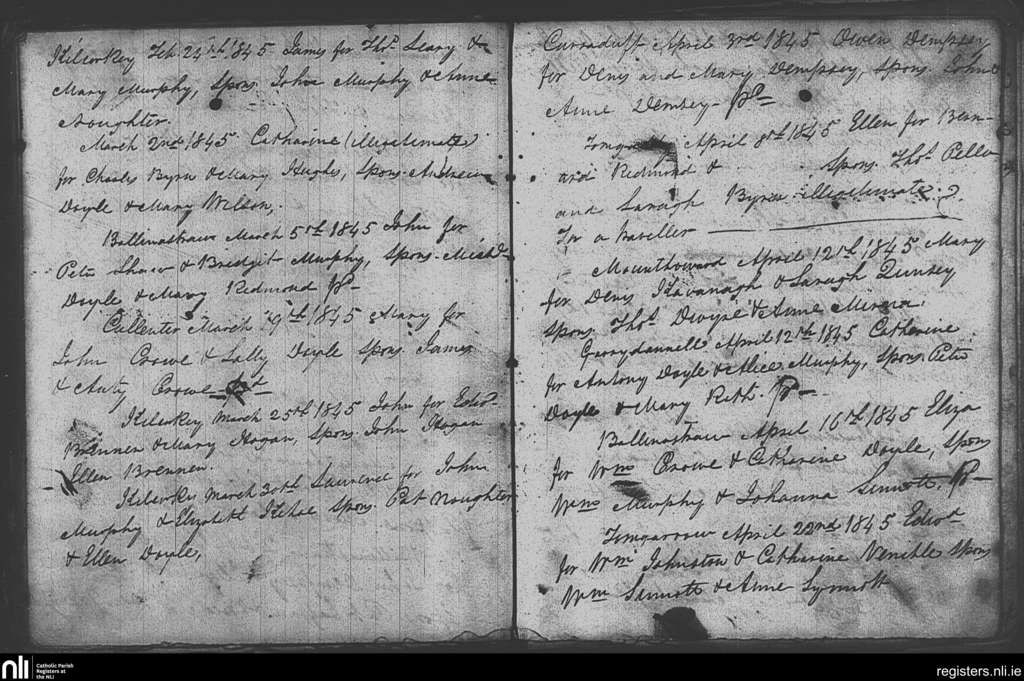 Kilcorkey Feb 24th 1845 James for Thos. Leary &
Mary Murphy, Spons. John Murphy & Anne
Noughter.
March 2nd 1845 Catharine (illegitimate)
for Charles Byrn & Mary Hughes, Spons. Andrew
Doyle & Mary Wilson,
Ballinastraw March 5th 1845 John for
Peter Shaw & Bridget Murphy, Spons. Michl.
Doyle & Mary Redmond Pd
March 9th 1845 Mary for
John Crowe & Sally Doyle Spons. James
& Anty Crowe Pd
Kilcorkey March 25th 1845 John for Edwd.
Brennen & Mary Hogan, Spons. John Hogan
Ellen Brennen.
Kilcorkey March 30th Laurence for John
Murphy & Elizabeth Kehoe Spons. Pat Noughter
& Ellen Doyle,
Curraduff April 3rd 1845 Owen Dempsey
for Denis and Mary Dempsey, Spons. John &
Anne Demsey - Pd
April 8th 1845 Ellen for Bean-
and Redmond & Spons. Thos.
and Saragh Byrn illegitimate?
For a traveller
Mounthoward April 12th 1845 Mary
for Denis Kavanagh & Saragh Quinsey
Spons. Thos. Dwyse & Anne
Garrydannell April 12th 1845 Catherine
for Antony Doyle & Alice Murphy, Spons. Peter
Doyle & Mary Rath. Pd
Ballinastraw April 16th 1845 Eliza
for Wm Crowe & Catherine Doyle, Spons
Wm Murphy & Johanna Sinnott. Pd
Tomgarrow April 22nd 1845 Edwd
for Wm Johnston & Catharine Venible Spons
Wm Sinnott & Anne Synnott
nli
Catholic Parish
Registers at
the NLI
registers.nli.ie